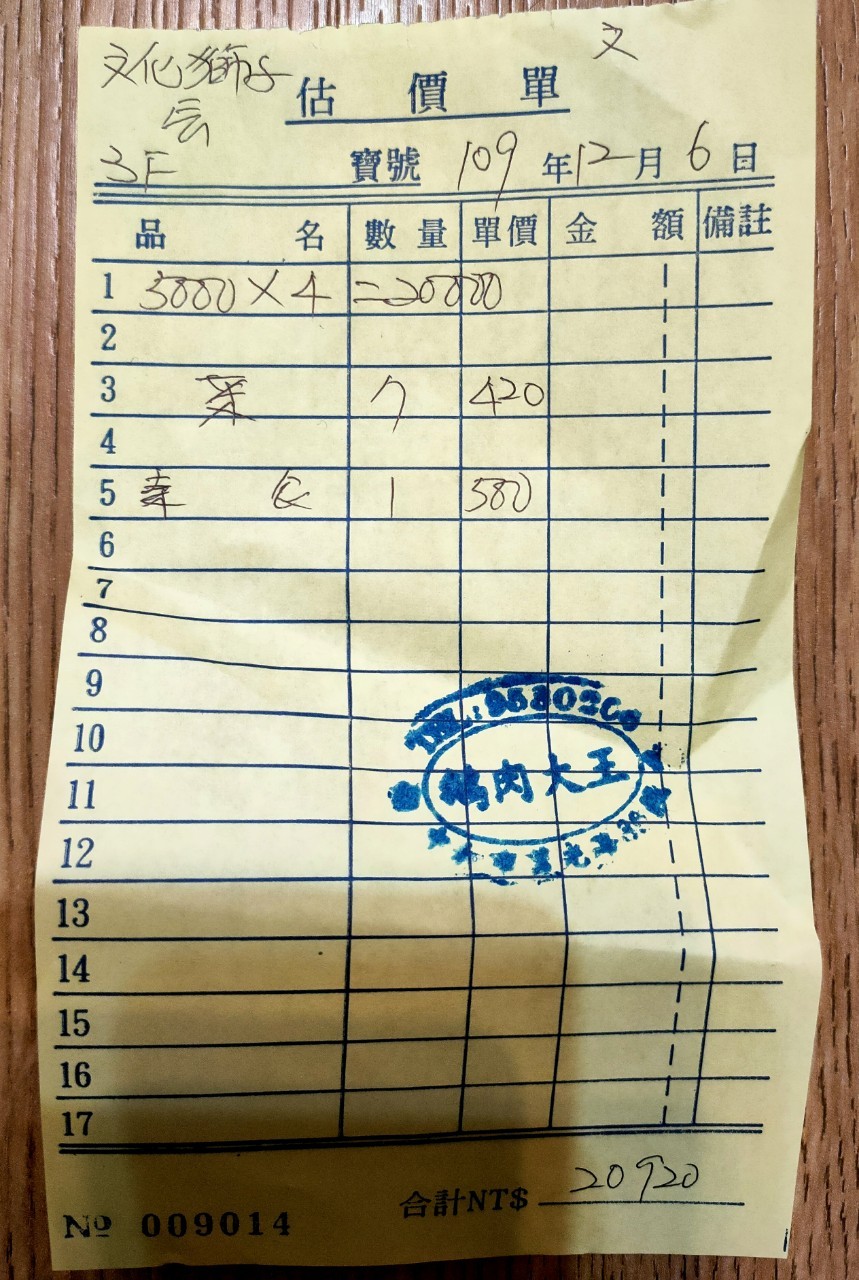 文化獅子 文
会
估價單
3F 寶號 109年12月6日
品名 數量 單價 金額 備註
1 5000×4=20000
2
3 菜 7 420
4
5 1 500
6
7
8
9
10
11
12
13
14
15
16
17
鵝肉大王
合計NT$ 20920
№ 009014